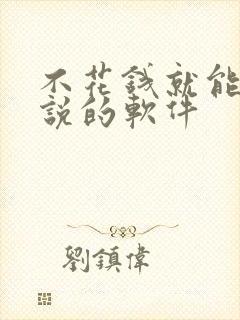 不花錢就能
說的軟件
劉鎮偉